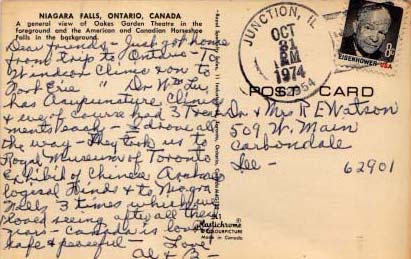 NIAGARA FALLS, ONTARIO, CANADA
A general view of Oakes Garden Theatre in the
foreground and the American and Canadian Horseshoe
Falls in the background.
Dear friends - Just got home
from trip to Ontario - To
Windsor Clinic
Fort Erie " Dr
has Acupuncture Clinics
& we of course had 3 treat
ments each - I drove all
the way - They took us to
Royal Museum of Toronto
Exhibit of Chinese Archeo
logical Finds & to Niagra
Falls 3 times which we
loved seeing after all these
years - Canada is
safe & peaceful - Love
Al & B -
Plastichrome
COLOURPICTURE
Made in Canada
JUNCTION, IL
OCT
31
PM
1974
62954
8c
EISENHOWER USA
POST CARD
Dr & Mrs R E Watson
509 W. Main
Carbondale
Ill - 62901